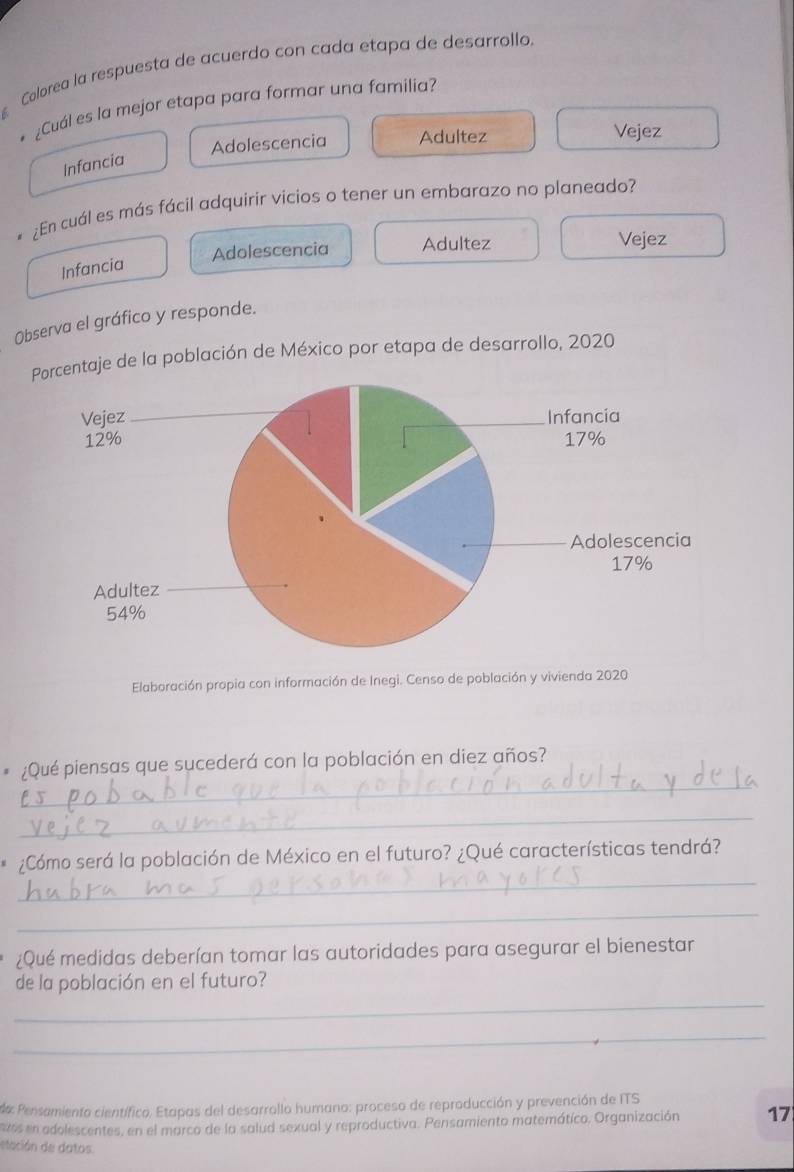 Colorea la respuesta de acuerdo con cada etapa de desarrollo.
• ¿Cuál es la mejor etapa para formar una familia?
Infancia Adolescencia Adultez Vejez
• ¿En cuál es más fácil adquirir vicios o tener un embarazo no planeado?
Infancia Adolescencia Adultez Vejez
Observa el gráfico y responde.
Porcentaje de la población de México por etapa de desarrollo, 2020
Vejez
12%
Infancia
17%
Adolescencia
17%
Adultez
54%
Elaboración propia con información de Inegi. Censo de población y vivienda 2020
• ¿Qué piensas que sucederá con la población en diez años?
es pobable que la población adulta y de la
vejez aumente
• ¿Cómo será la población de México en el futuro? ¿Qué características tendrá?
hubra mas personas mayores
• ¿Qué medidas deberían tomar las autoridades para asegurar el bienestar
de la población en el futuro?
Pensamiento científico. Etapas del desarrollo humano: proceso de reproducción y prevención de ITS
en adolescentes, en el marco de la salud sexual y reproductiva. Pensamiento matemático. Organización
de datos.
17